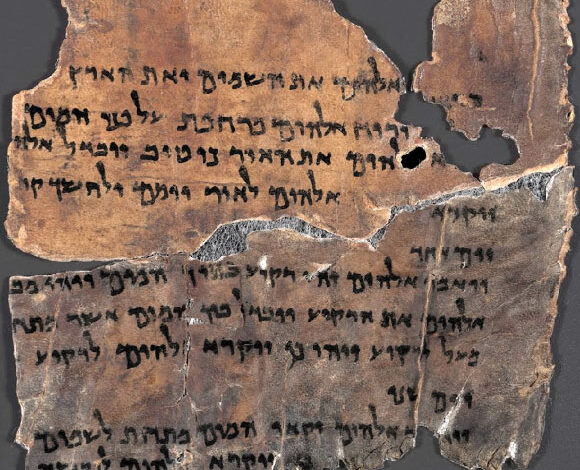 אלהים את השמים ואת הארץ
ורוח אלהים מרחפת על פני המים
אלהים את האור כי טוב ויבדל אלה
אלהים לאור יומם ולחשך ק
ויקרא
יום אחד
ויאמר אלהים יהי רקיע בתוך המים ויהי מב
אלהים את הרקיע ויבדל בין המים אשר מתח
מעל לרקיע ויהי כן ויקרא אלהים לרקיע
יום שני
אלהים יקאו המים מתחת לשמים
ויקרא אלהים